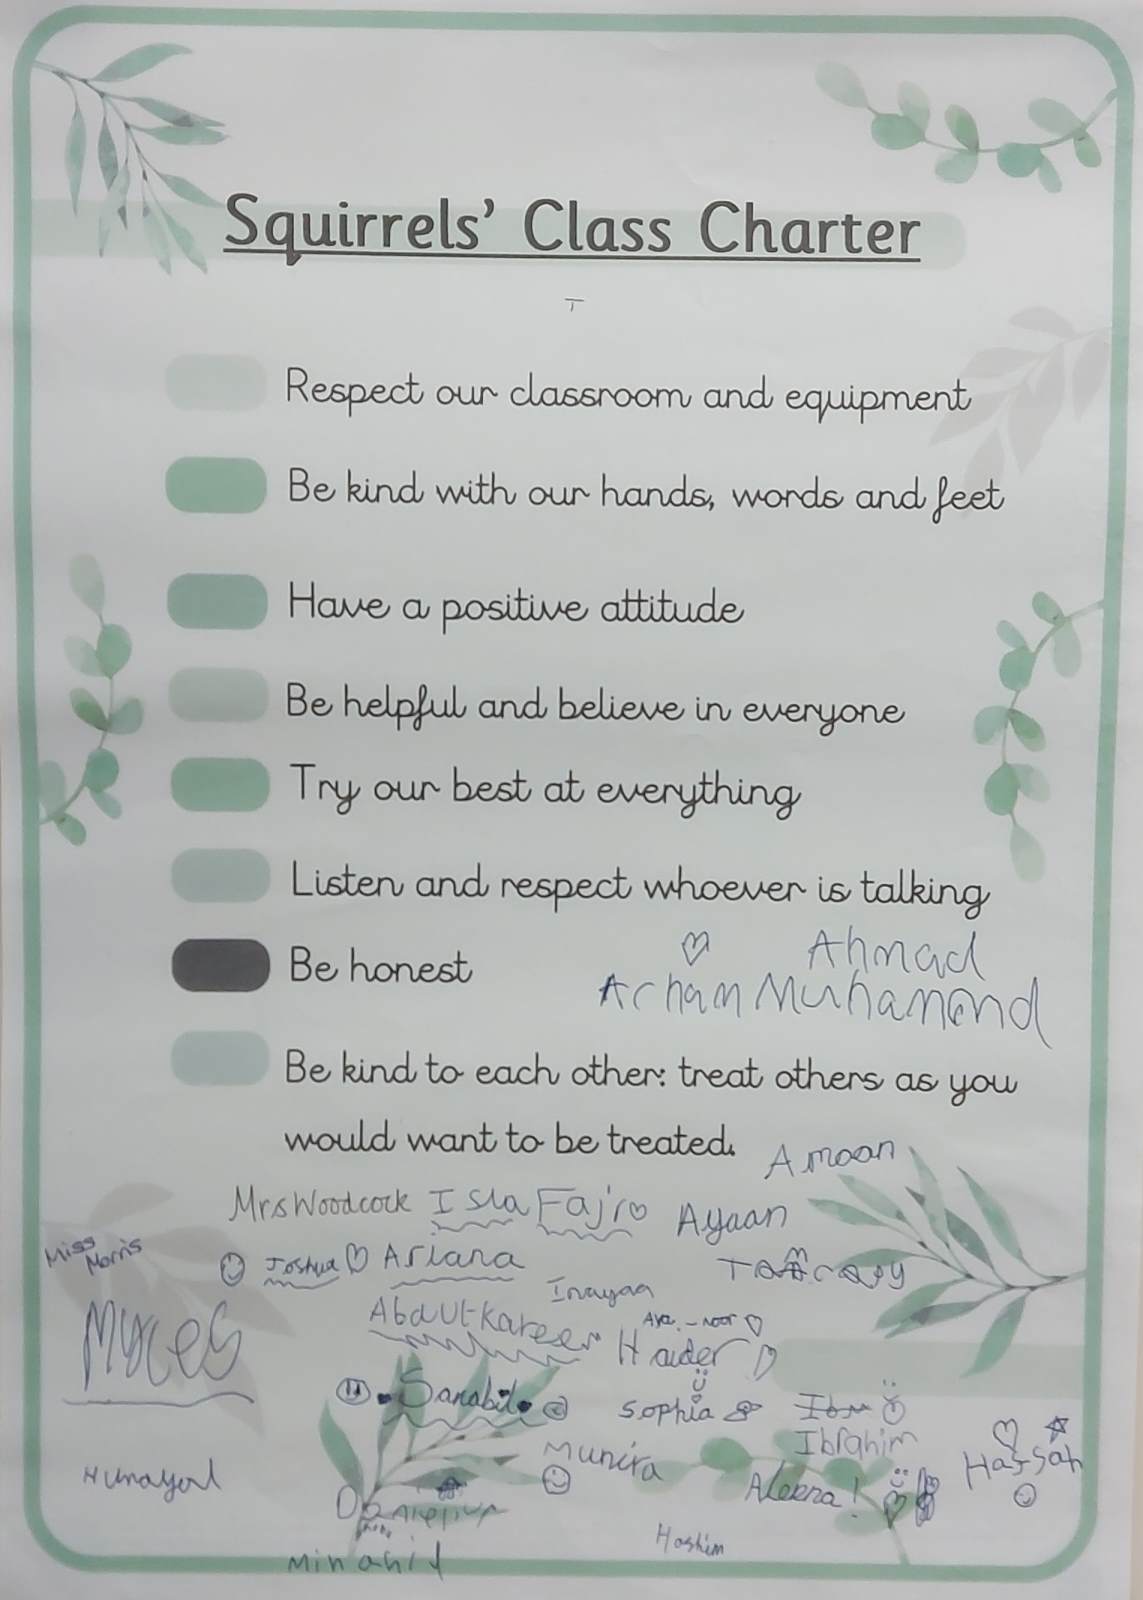 Squirrels' Class Charter
Respect our classroom and equipment
Be kind with our hands, words and feet
Have a positive attitude
Be helpful and believe in everyone
Try our best at everything
Listen and respect whoever is talking
Ahmad
Be honest
Arham Muhammad
Be kind to each other: treat others as you
would want to be treated.
Amaan
Mrs Woodcock Isla Fajr Ayaan
Miss
Morris
Joshua Ariana
Inayaa
Abdul-Kareem
Haider
Myles
Sanabil
Sophia
Ibrahim
Munira
Hafsah
Aleena!
Minahil
Hashim